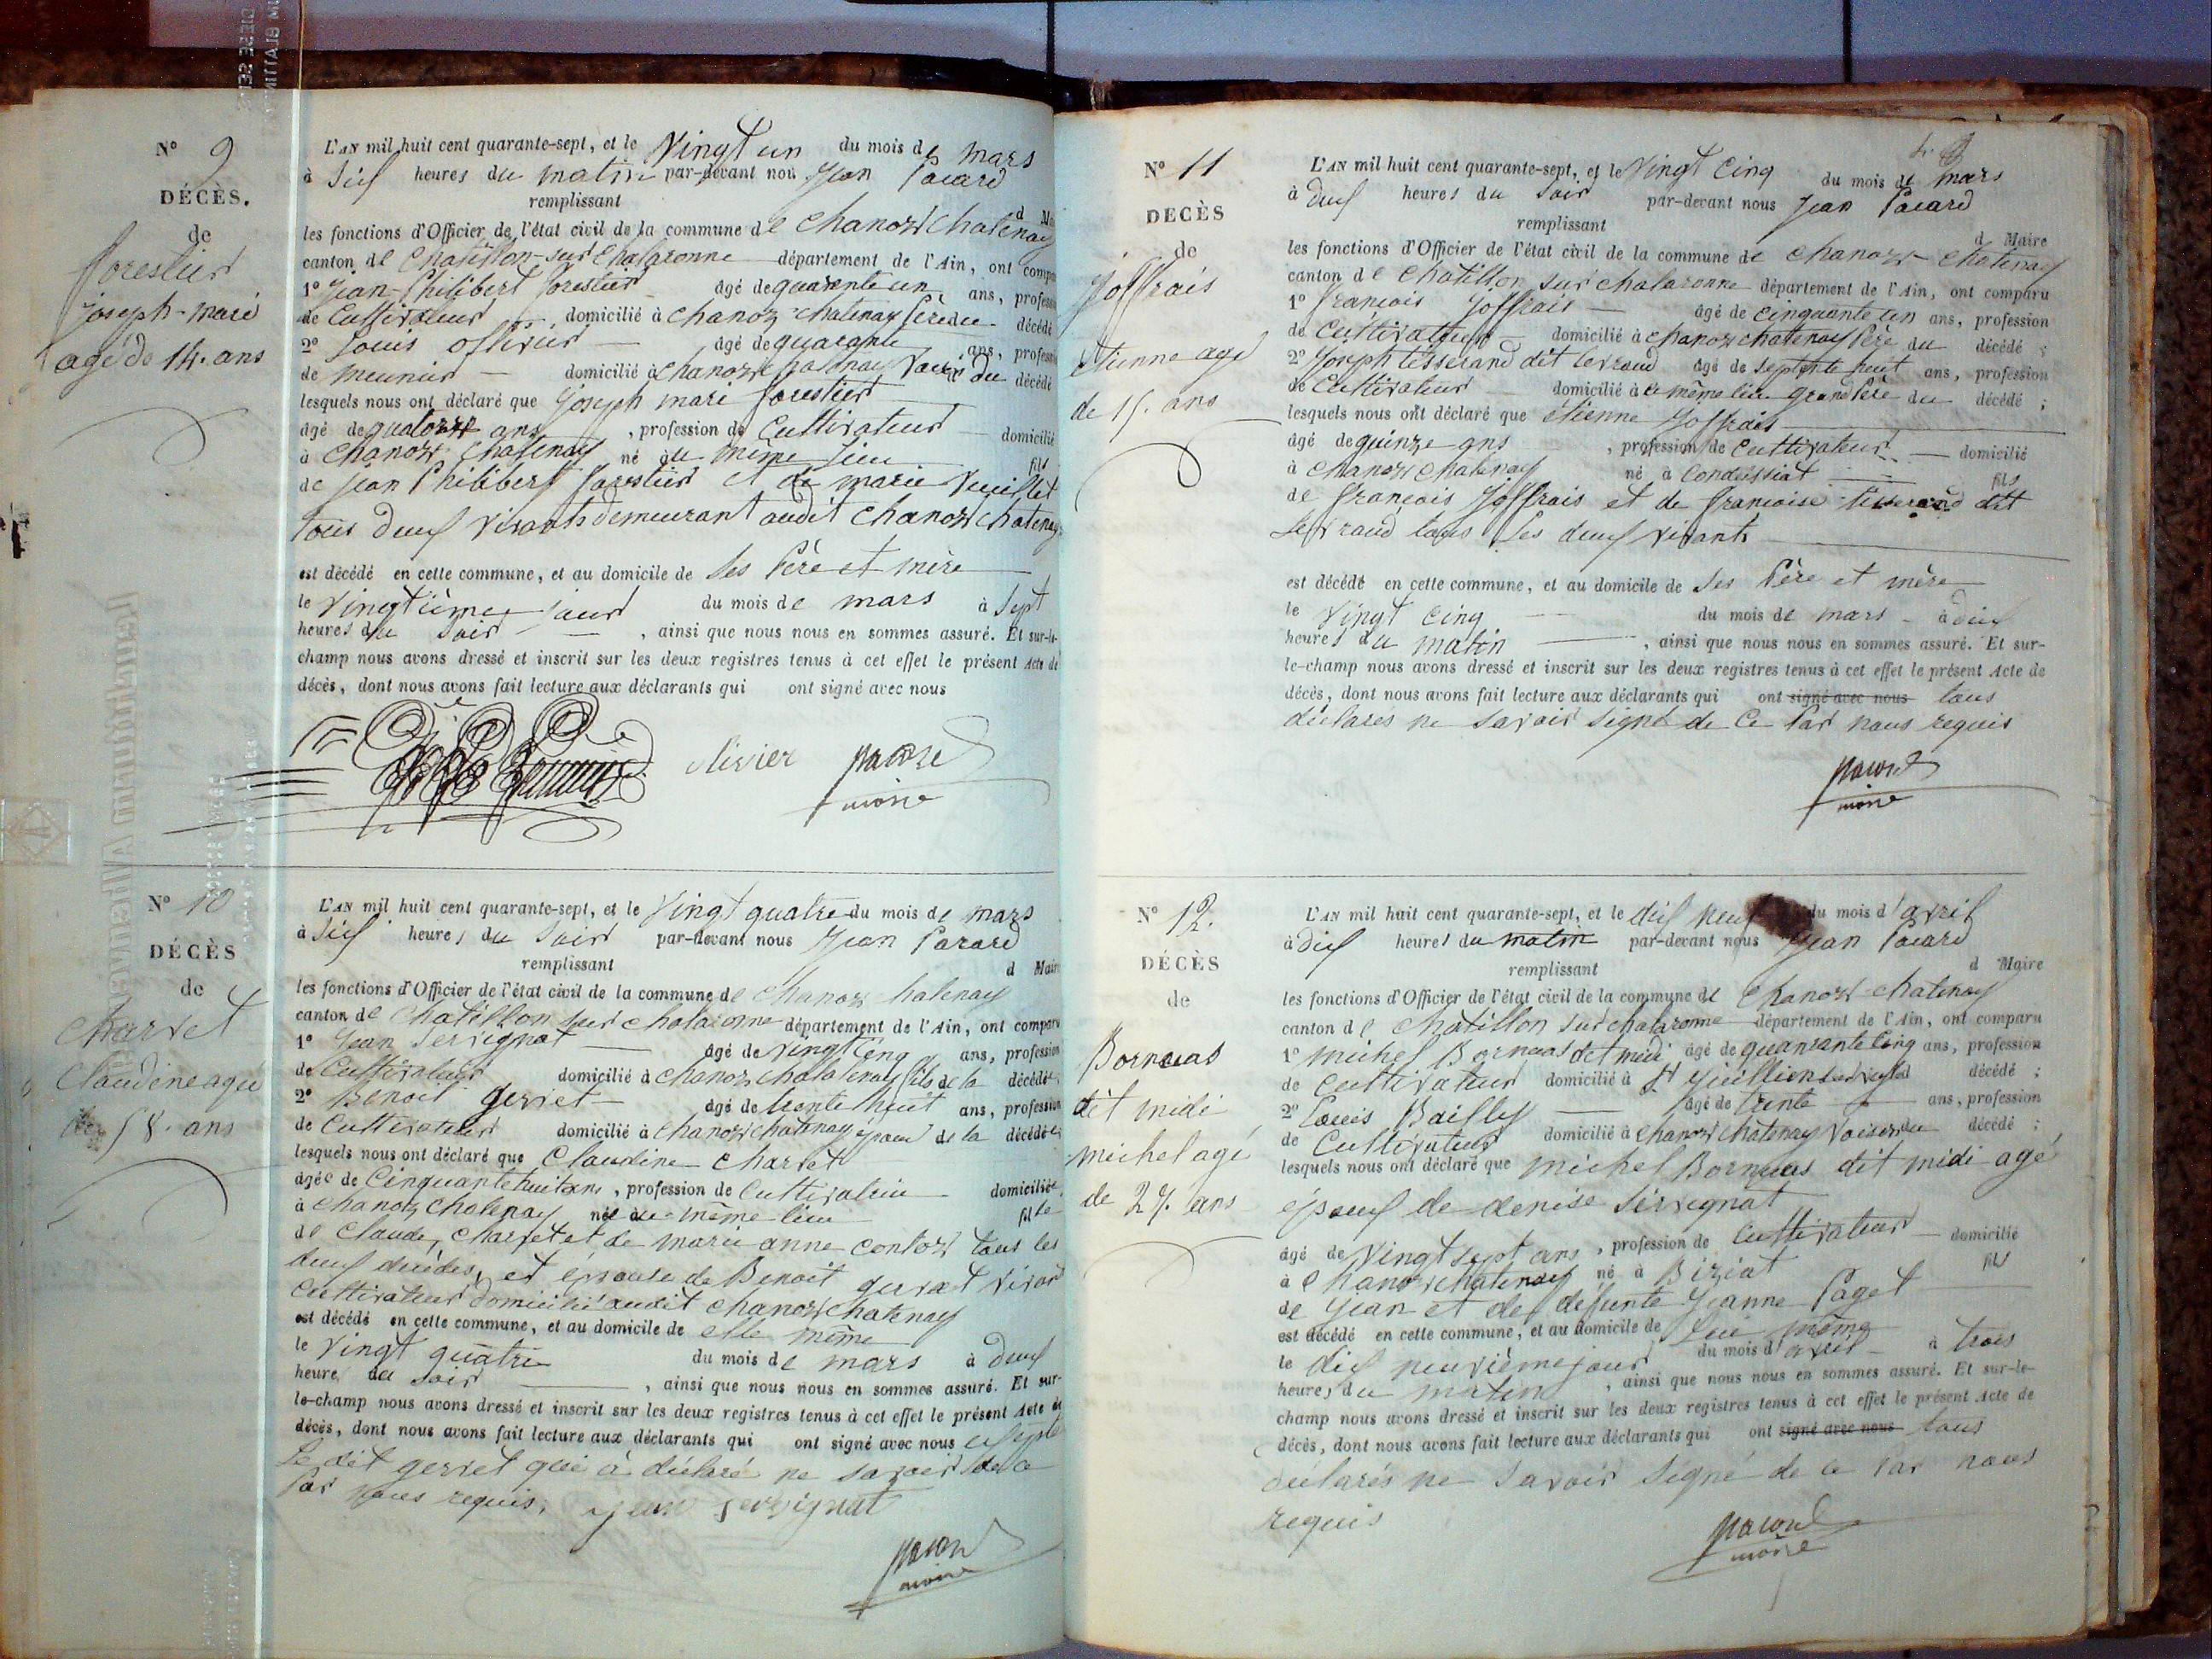 N° 9
DÉCÈS.
de
forestier
joseph-marie
agé de 14. ans
L'AN mil huit cent quarante-sept, et le Vingt un du mois de mars
à Six heures du matin par-devant nou Jean Pacard
remplissant d Ma
les fonctions d'Officier de l'état civil de la commune de Chanoz Chatenay
canton de Chatillon-sur Chalaronne département de l'Ain, ont compa
1° Jean-Philibert forestier agé de quarente un ans, profess
de Cultivateur domicilié à Chanoz Chatenay Père du décédé
2° Louis Ollivier agé de quarante ans, profess
de meunier domicilié à Chanoz Chatenay Voisin du décédé
lesquels nous ont déclaré que joseph marie forestier
âgé de quatorze ans, profession de Cultivateur domicilié
à Chanoz Chatenay né au même Lieu fils
de Jean Philibert forestier et de marie Veuillet
tous deux vivants demeurant audit Chanoz Chatenay
est décédé en cette commune, et au domicile de Ses Père et mère
le Vingtième jour du mois de mars à Sept
heures du Soir, ainsi que nous nous en sommes assuré. Et sur-le-
champ nous avons dressé et inscrit sur les deux registres tenus à cet effet le présent Acte de
décès, dont nous avons fait lecture aux déclarants qui ont signé avec nous
olivier pacard
maire
N° 10
DÉCÈS
de
Charvet
Claudine agée
de 58. ans
L'AN mil huit cent quarante-sept, et le Vingt quatre du mois de mars
à Six heures du Soir par-devant nous Jean Pacard
remplissant d Maire
les fonctions d'Officier de l'état civil de la commune de Chanoz Chatenay
canton de Chatillon sur Chalaronne département de l'Ain, ont comparu
1° Jean Servignat âgé de Vingt Cinq ans, profession
de Cultivateur domicilié à Chanoz Chatenay fils de la décédée
2° Benoit gervet âgé de trente huit ans, profession
de Cultivateur domicilié à Chanoz Chatenay époux de la décédée
lesquels nous ont déclaré que Claudine Charvet
âgée de Cinquante huit ans, profession de Cultivatrice domiciliée
à Chanoz Chatenay née au même lieu fille
de Claude, Charvet et de marie anne Contoz tous les
deux décédés, et épouse de Benoit gervet vivant
Cultivateur domicilié audit Chanoz Chatenay
est décédé en cette commune, et au domicile de elle même
le Vingt quatre du mois de mars à deux
heure du Soir, ainsi que nous nous en sommes assuré. Et sur-
le-champ nous avons dressé et inscrit sur les deux registres tenus à cet effet le présent Acte de
décès, dont nous avons fait lecture aux déclarants qui ont signé avec nous excepté
Le dit gervet qui à déclaré ne savoir de ce
Par nous requis, jean servignat
pacard
maire
N° 11
DECÈS
de
Joffrais
Etienne agé
de 15. ans
L'AN mil huit cent quarante-sept, et le Vingt Cinq du mois de mars
à deux heures du Soir par-devant nous Jean Pacard
remplissant d Maire
les fonctions d'Officier de l'état civil de la commune de Chanoz-Chatenay
canton de Chatillon sur Chalaronne département de l'Ain, ont comparu
1° françois Joffrais âgé de Cinquante un ans, profession
de Cultivateur domicilié à Chanoz Chatenay Père du décédé ;
2° Joseph tisserand dit Levraud âgé de Septante huit ans, profession
de Cultivateur domicilié à ce même lieu grand Père du décédé ;
lesquels nous ont déclaré que etienne Joffrais
âgé de quinze ans, profession de Cultivateur domicilié
à Chanoz Chatenay né à Condeissiat fils
de françois Joffrais et de françoise tisserand dit
Levraud tous les deux vivants
est décédé en cette commune, et au domicile de Ses Père et mère
le Vingt Cinq du mois de mars à dix
heures du matin, ainsi que nous nous en sommes assuré. Et sur-
le-champ nous avons dressé et inscrit sur les deux registres tenus à cet effet le présent Acte de
décès, dont nous avons fait lecture aux déclarants qui ont signé avec nous tous
déclarés ne savoir signé de Ce Par nous requis
pacard
maire
N° 12.
DÉCÈS
de
Bornuas
dit midi
michel agé
de 27. ans
L'AN mil huit cent quarante-sept, et le dix neuf du mois d'avril
à dix heures du matin par-devant nous Jean Pacard
remplissant d Maire
les fonctions d'Officier de l'état civil de la commune de Chanoz-Chatenay
canton de Chatillon sur Chalaronne département de l'Ain, ont comparu
1° michel Bornuas dit midi âgé de quarante Cinq ans, profession
de Cultivateur domicilié à St décédé ;
2° Louis Bailly âgé de trente ans, profession
de Cultivateur domicilié à Chanoz Chatenay Voisin du décédé ;
lesquels nous ont déclaré que michel Bornuas dit midi agé
époux de denise Servignat
âgé de Vingt sept ans, profession de Cultivateur domicilié
à Chanoz Chatenay né à Biziat fils
de Jean et de défunte Jeanne Paget
est décédé en cette commune, et au domicile de lui même
le dix neuvième jour du mois d'avril à trois
heures du matin, ainsi que nous nous en sommes assuré. Et sur-le-
champ nous avons dressé et inscrit sur les deux registres tenus à cet effet le présent Acte de
décès, dont nous avons fait lecture aux déclarants qui ont signé avec nous tous
déclarés ne Savoir Signé de ce Par nous
requis
pacard
maire